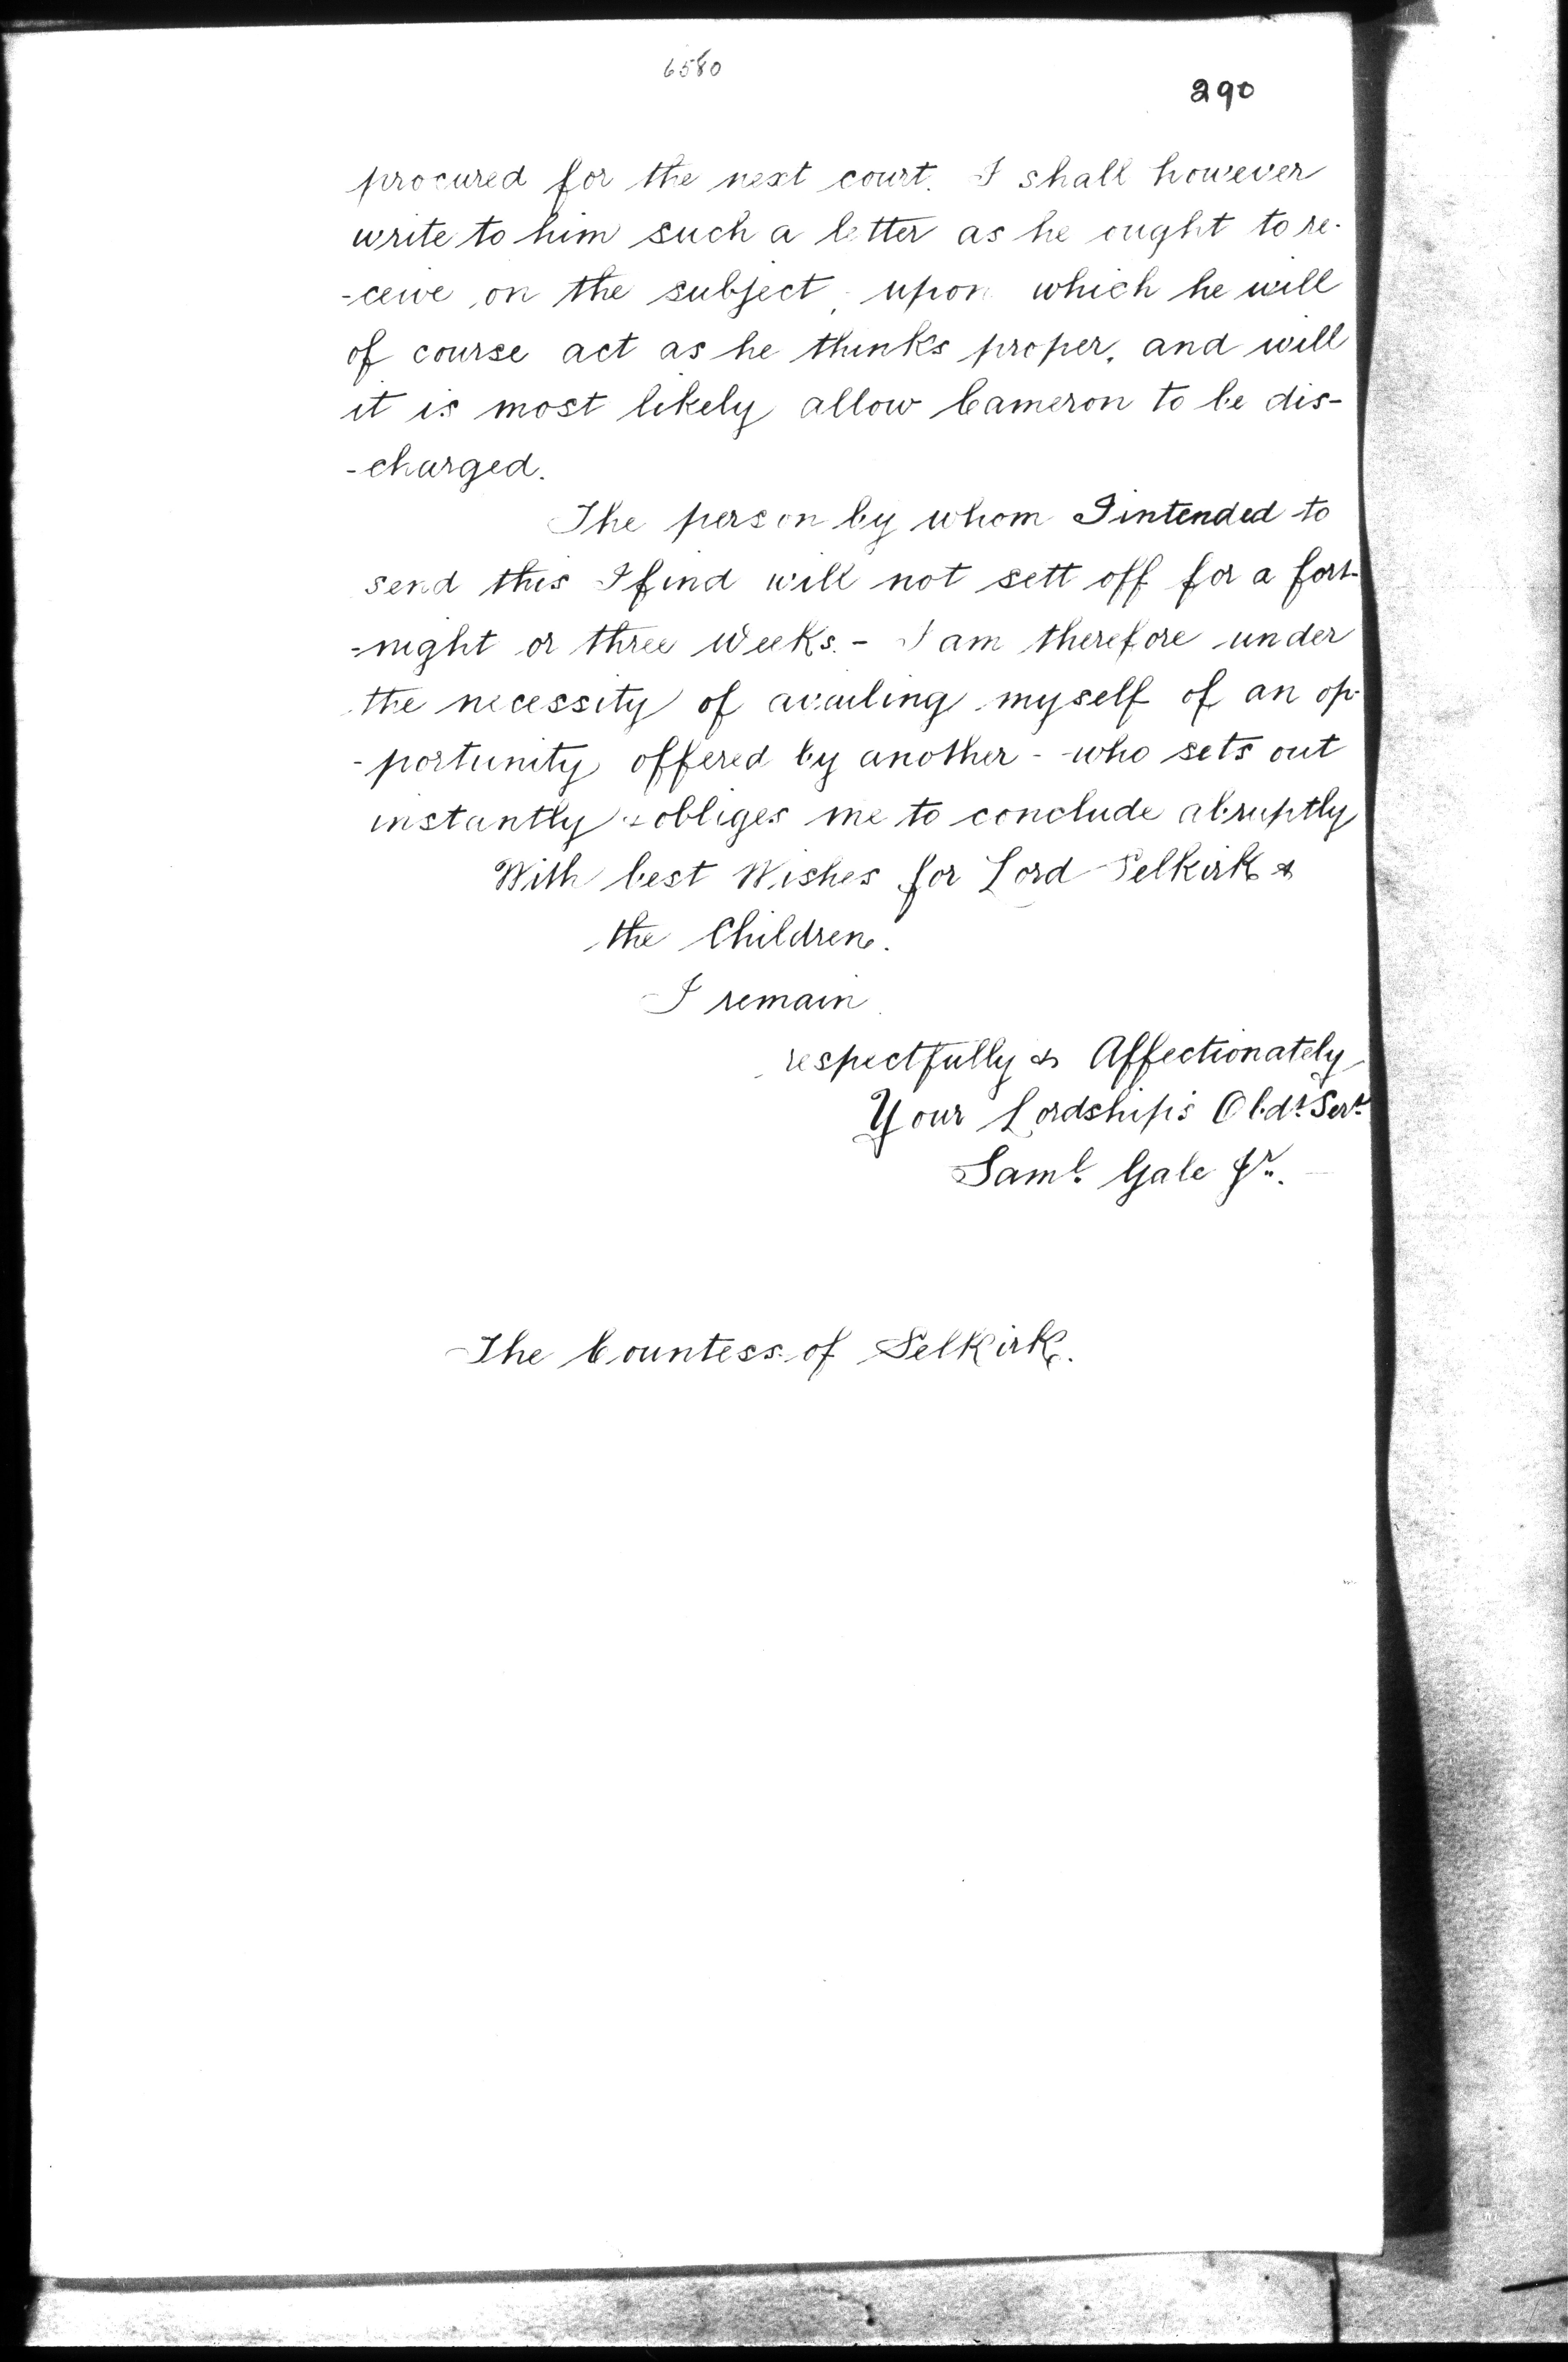 6580
290
procured for the next court. I shall however
write to him such a letter as he ought to re-
-ceive on the subject, upon which he will
of course act as he thinks proper, and will
it is most likely allow Cameron to be dis-
-charged.
The person by whom I intended to
send this I find will not sett off for a fort-
-night or three weeks. - I am therefore under
the necessity of availing myself of an op-
-portunity offered by another - who sets out
instantly & obliges me to conclude abruptly
With best Wishes for Lord Selkirk &
the Children.
I remain
respectfully & Affectionately
Your Lordship's Obdt. Servt.
Saml. Gale Jr.
The Countess of Selkirk.